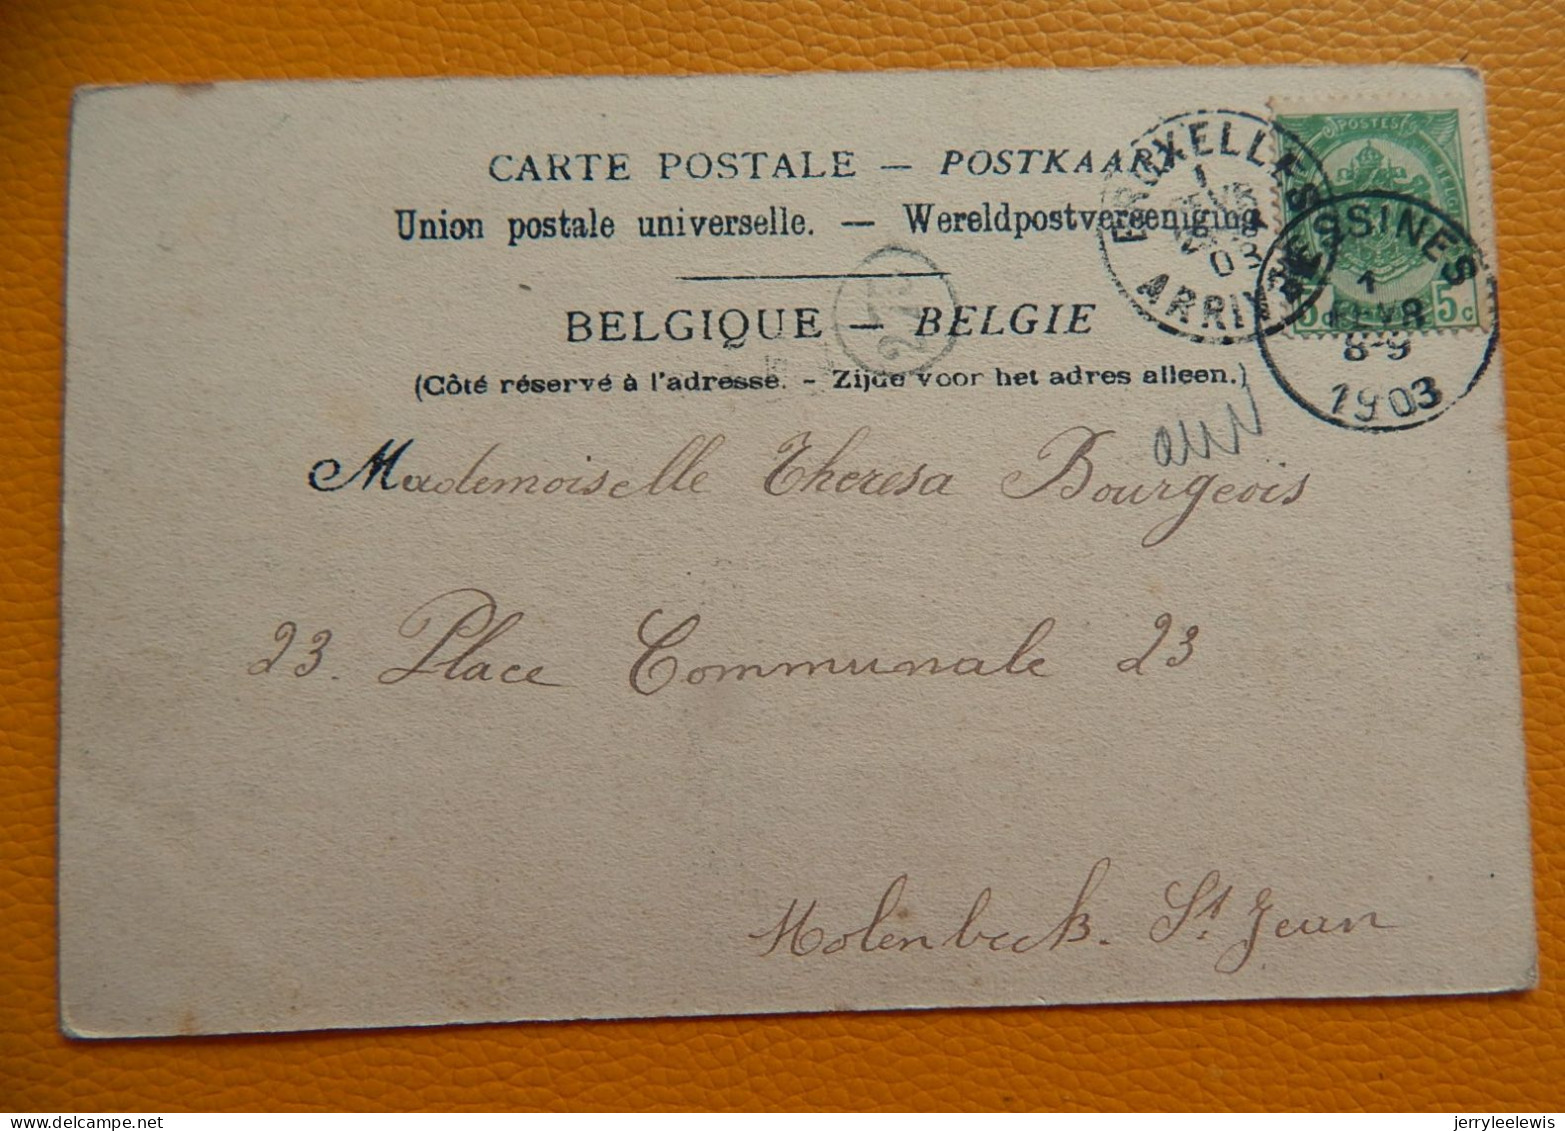 CARTE POSTALE — POSTKAART
Union postale universelle. — Wereldpostvereeniging
BELGIQUE — BELGIE
(Côté réservé à l'adresse. - Zijde voor het adres alleen.)
BRUXELLES
1
03
ARRIVÉE
POSTES
5c 5c
LESSINES
1
FEVR
8-9
1903
Mademoiselle Theresa Bourgeois
23. Place Communale 23
Molenbeek. St. Jean
jerryleelewis